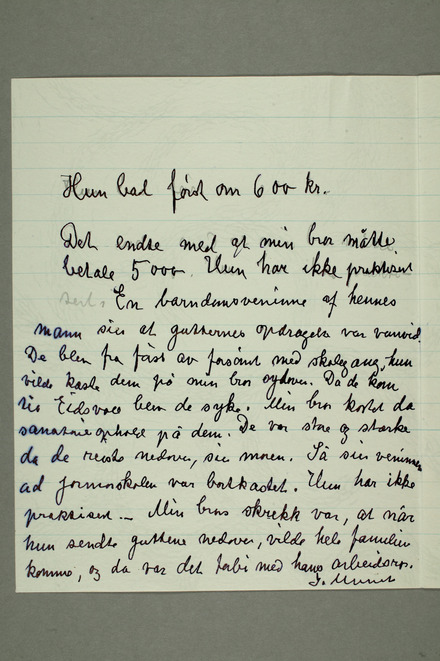 Hun bad først om 600 kr.
Det endte med at min bror måtte
betale 5000. Hun har ikke praktisert
En barndomsveninne af hennes
mann sier at guttenes opdragelse var vanvid.
De blev fra først av forsømt med skolegang, hun
vilde kaste dem på min bror sydover. Da de kom
til Eidsvoll blev de syke. Min bror kostet da
sanatorieophold på dem. De var store og stærke
da de reiste nedover, sier moren. Så sier veninnen
ad formerskolen var bortkastet. Hun har ikke
praktisert – Min brors skrekk var, at når
hun sendte guttene nedover, vilde hele familien
komme, og da var det forbi med hans arbeidsro.
I. Munch